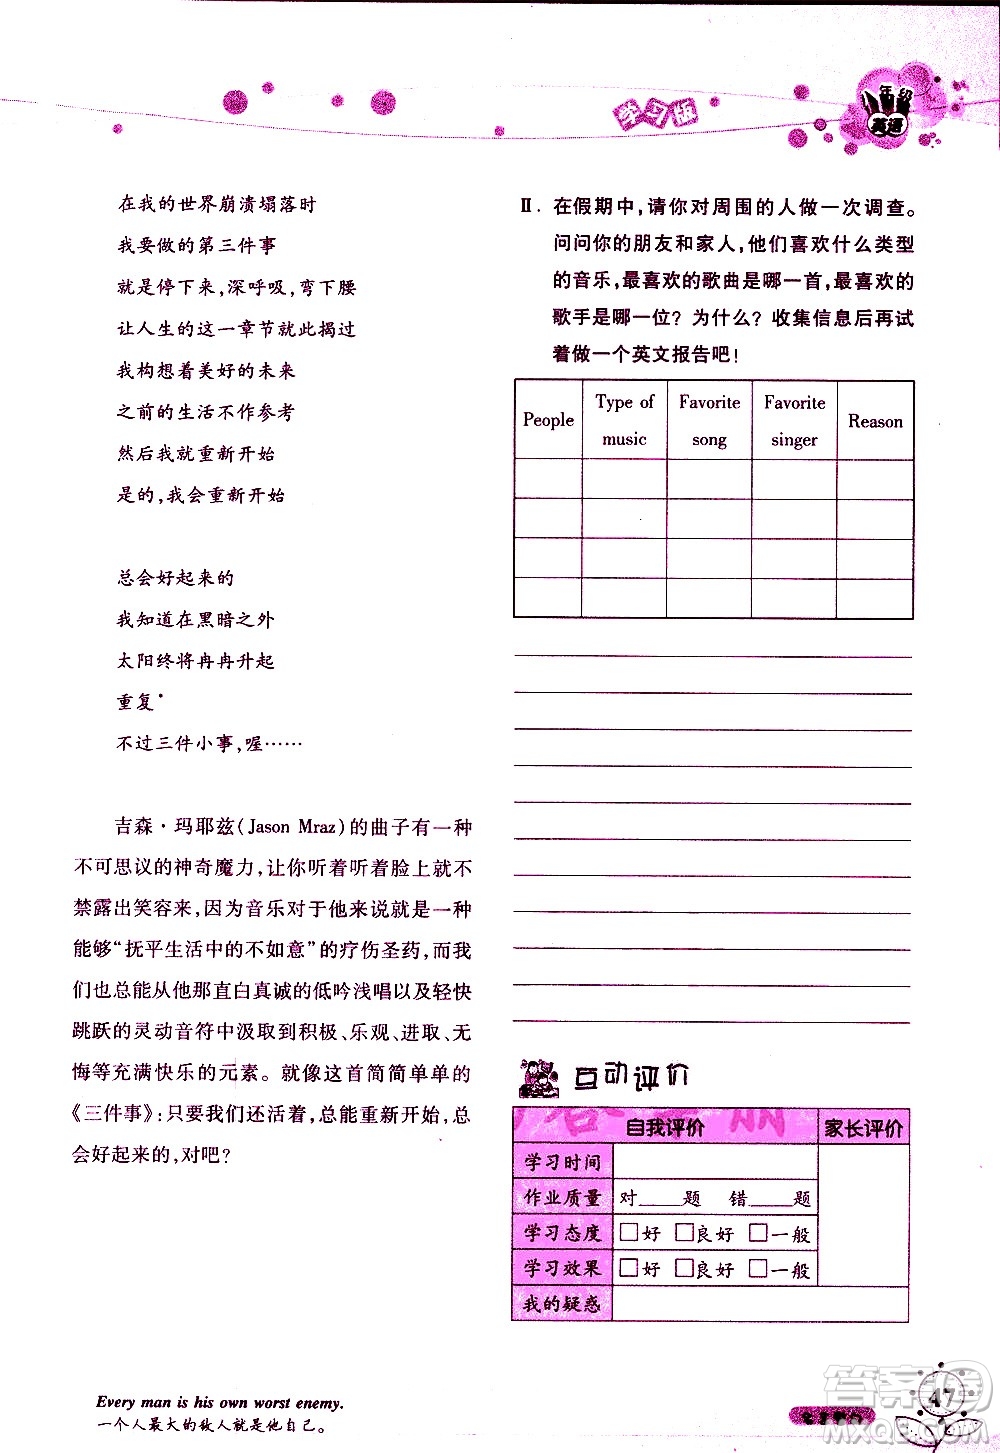 学习版
年级
英语
在我的世界崩溃塌落时
我要做的第三件事
就是停下来,深呼吸,弯下腰
让人生的这一章节就此揭过
我构想着美好的未来
之前的生活不作参考
然后我就重新开始
是的,我会重新开始
总会好起来的
我知道在黑暗之外
太阳终将冉冉升起
重复
不过三件小事,喔……
吉森·玛耶兹(Jason Mraz)的曲子有一种
不可思议的神奇魔力,让你听着听着脸上就不
禁露出笑容来,因为音乐对于他来说就是一种
能够“抚平生活中的不如意”的疗伤圣药,而我
们也总能从他那直白真诚的低吟浅唱以及轻快
跳跃的灵动音符中汲取到积极、乐观、进取、无
悔等充满快乐的元素。就像这首简简单单的
《三件事》:只要我们还活着,总能重新开始,总
会好起来的,对吧?
Ⅱ. 在假期中,请你对周围的人做一次调查。
问问你的朋友和家人,他们喜欢什么类型
的音乐,最喜欢的歌曲是哪一首,最喜欢的
歌手是哪一位?为什么?收集信息后再试
着做一个英文报告吧!
People Type of music Favorite song Favorite singer Reason
互动评价
自我评价 家长评价
学习时间
作业质量 对____题 错____题
学习态度 □好 □良好 □一般
学习效果 □好 □良好 □一般
我的疑惑
Every man is his own worst enemy.
一个人最大的敌人就是他自己。
47
答案圈
MXQE.COM